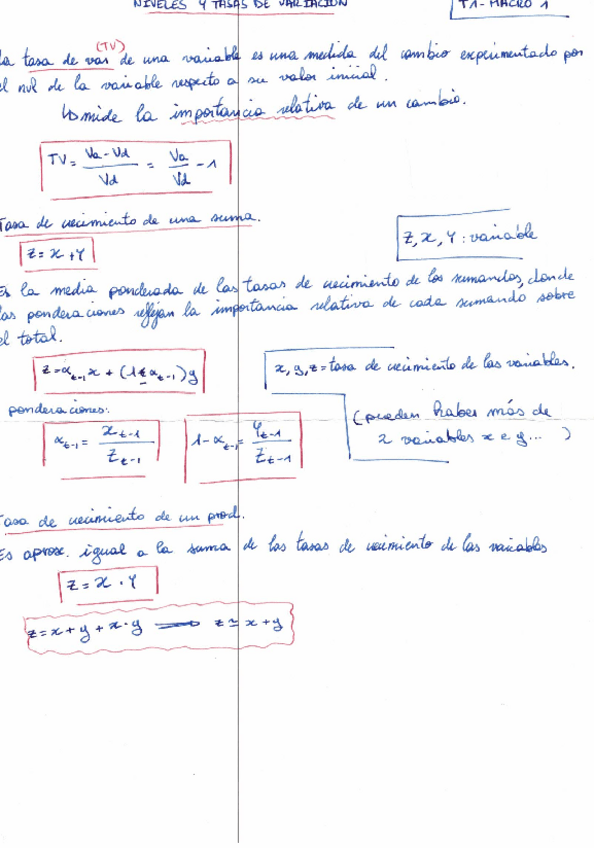 NIVELES Y TASAS DE VARIACIÓN
T1 - MACRO 1
(TV)
La tasa de var de una variable es una medida del cambio experimentado por
el nvl de la variable respecto a su valor inicial.
↳ mide la importancia relativa de un cambio.
TV = Va - Vd / Vd = Va / Vd - 1
Tasa de crecimiento de una suma.
Z = X + Y
Z, X, Y : variable
Es la media ponderada de las tasas de crecimiento de los sumandos, donde
las ponderaciones reflejan la importancia relativa de cada sumando sobre
el total.
z = α t-1 x + (1 - α t-1) y
x, y, z = tasa de crecimiento de las variables.
ponderaciones:
α t-1 = X t-1 / Z t-1
1 - α t-1 = Y t-1 / Z t-1
(pueden haber más de
2 variables x e y... )
Tasa de crecimiento de un prod.
Es aprox. igual a la suma de las tasas de crecimiento de las variables
Z = X · Y
z = x + y + x · y → z ≃ x + y